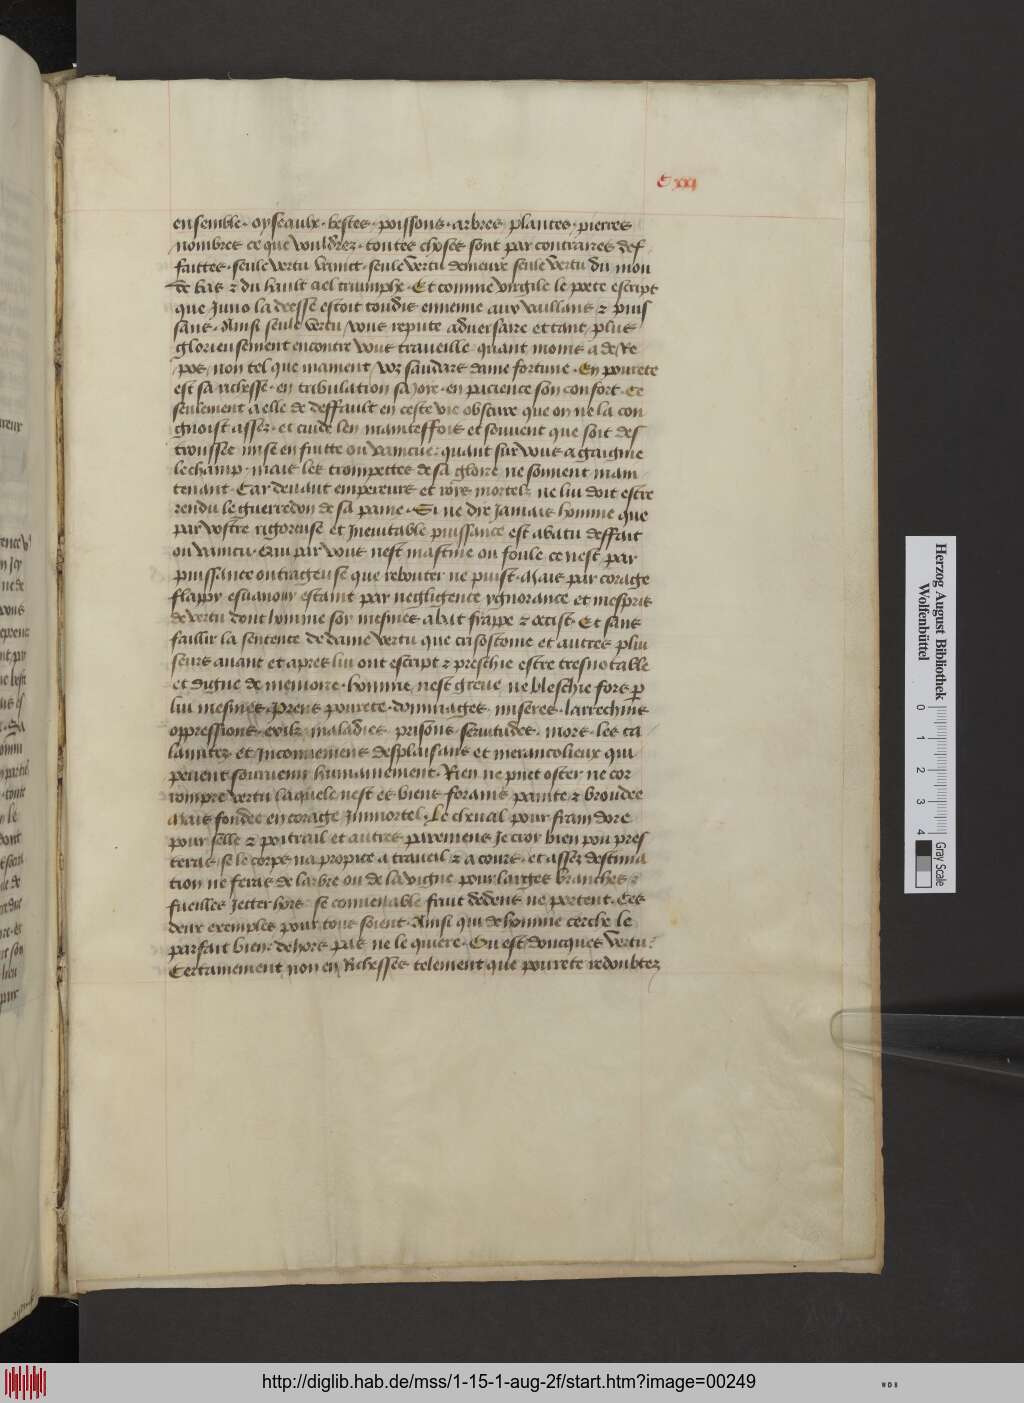 C xxi
ensemble · oyseaulx · bestes · poissons · arbres plantes · pierres
nombres ce que vouldrez · toutes choses sont par contraires def
faittes · seule vertu vainct · seule vertu demeure seule vertu du mon
de bas & du hault ciel triumphe · Et comme virgile le poete escript
que Juno la deesse estoit toudis ennemie aux vaillans & puis
sans · Ainsi seule vertu vous repute adversaire et tant plus
glorieusement encontre vous traveille quant moins a de re
pos, non tel que mainent voz saudars dame fortune · En povrete
est sa richesse · en tribulation sa joye · en pacience son confort · Ce
seulement a elle de deffault en ceste vie obscure que on ne la con
gnoist assez · et cuide len maintesfois et souvent que soit des
troussee mise en fuitte ou vaincue quant sur vous a gaignie
le champ · mais les trompettes de sa gloire ne sonnent main
tenant · Car devant empereurs et roys mortelz ne lui doit estre
rendu le guerredon de sa paine · Si ne die jamais homme que
par vostre rigoreuse et Inevitable puissance est abatu deffait
ou vaincu · Qui par vous nest mastine ou foule ce nest par
puissance outrageuse que rebouter ne puist · Mais par corage
flappy esvanouy estaint par negligence ygnorance et mespris
de vertu dont homme soy mesmes abat frappe & occist · Et sans
faillir la sentence de dame vertu que crisostome et autres plu
seurs avant et apres lui ont escript & preschie estre tresnotable
et digne de memoire · homme nest greve ne bleschie fors p
lui mesmes · Prens povrete · dommages · miseres · larrechins
oppressions · exilz · maladies · prisons · servitudes · mors · les ca
lamitez · et Inconveniens desplaisans et merancolieux qui
pevent sourvenir humainement · Rien ne puet oster ne cor
rompre vertu laquele nest es biens forains painte & broudee
Mais fondee en corage Immortel · Le cheval pour frain dore
pour selle & poitrail et autres paremens Je croy bien pou pres
teras · se le corps na propice a travail & a cours · et assez destima
tion ne feras de larbre ou de la vigne pour larges branches &
fueilles Jetter hors se convenable fruit dedens ne portent · Ces
deux exemples pour tous soient · Ainsi qui de homme cerche le
parfait bien dehors pas ne le quiere · Ou est doncques vertu
Certainement non en Richesses telement que povrete redoubtez
Herzog August Bibliothek
Wolfenbüttel
0 1 2 3 4
Gray Scale
http://diglib.hab.de/mss/1-15-1-aug-2f/start.htm?image=00249